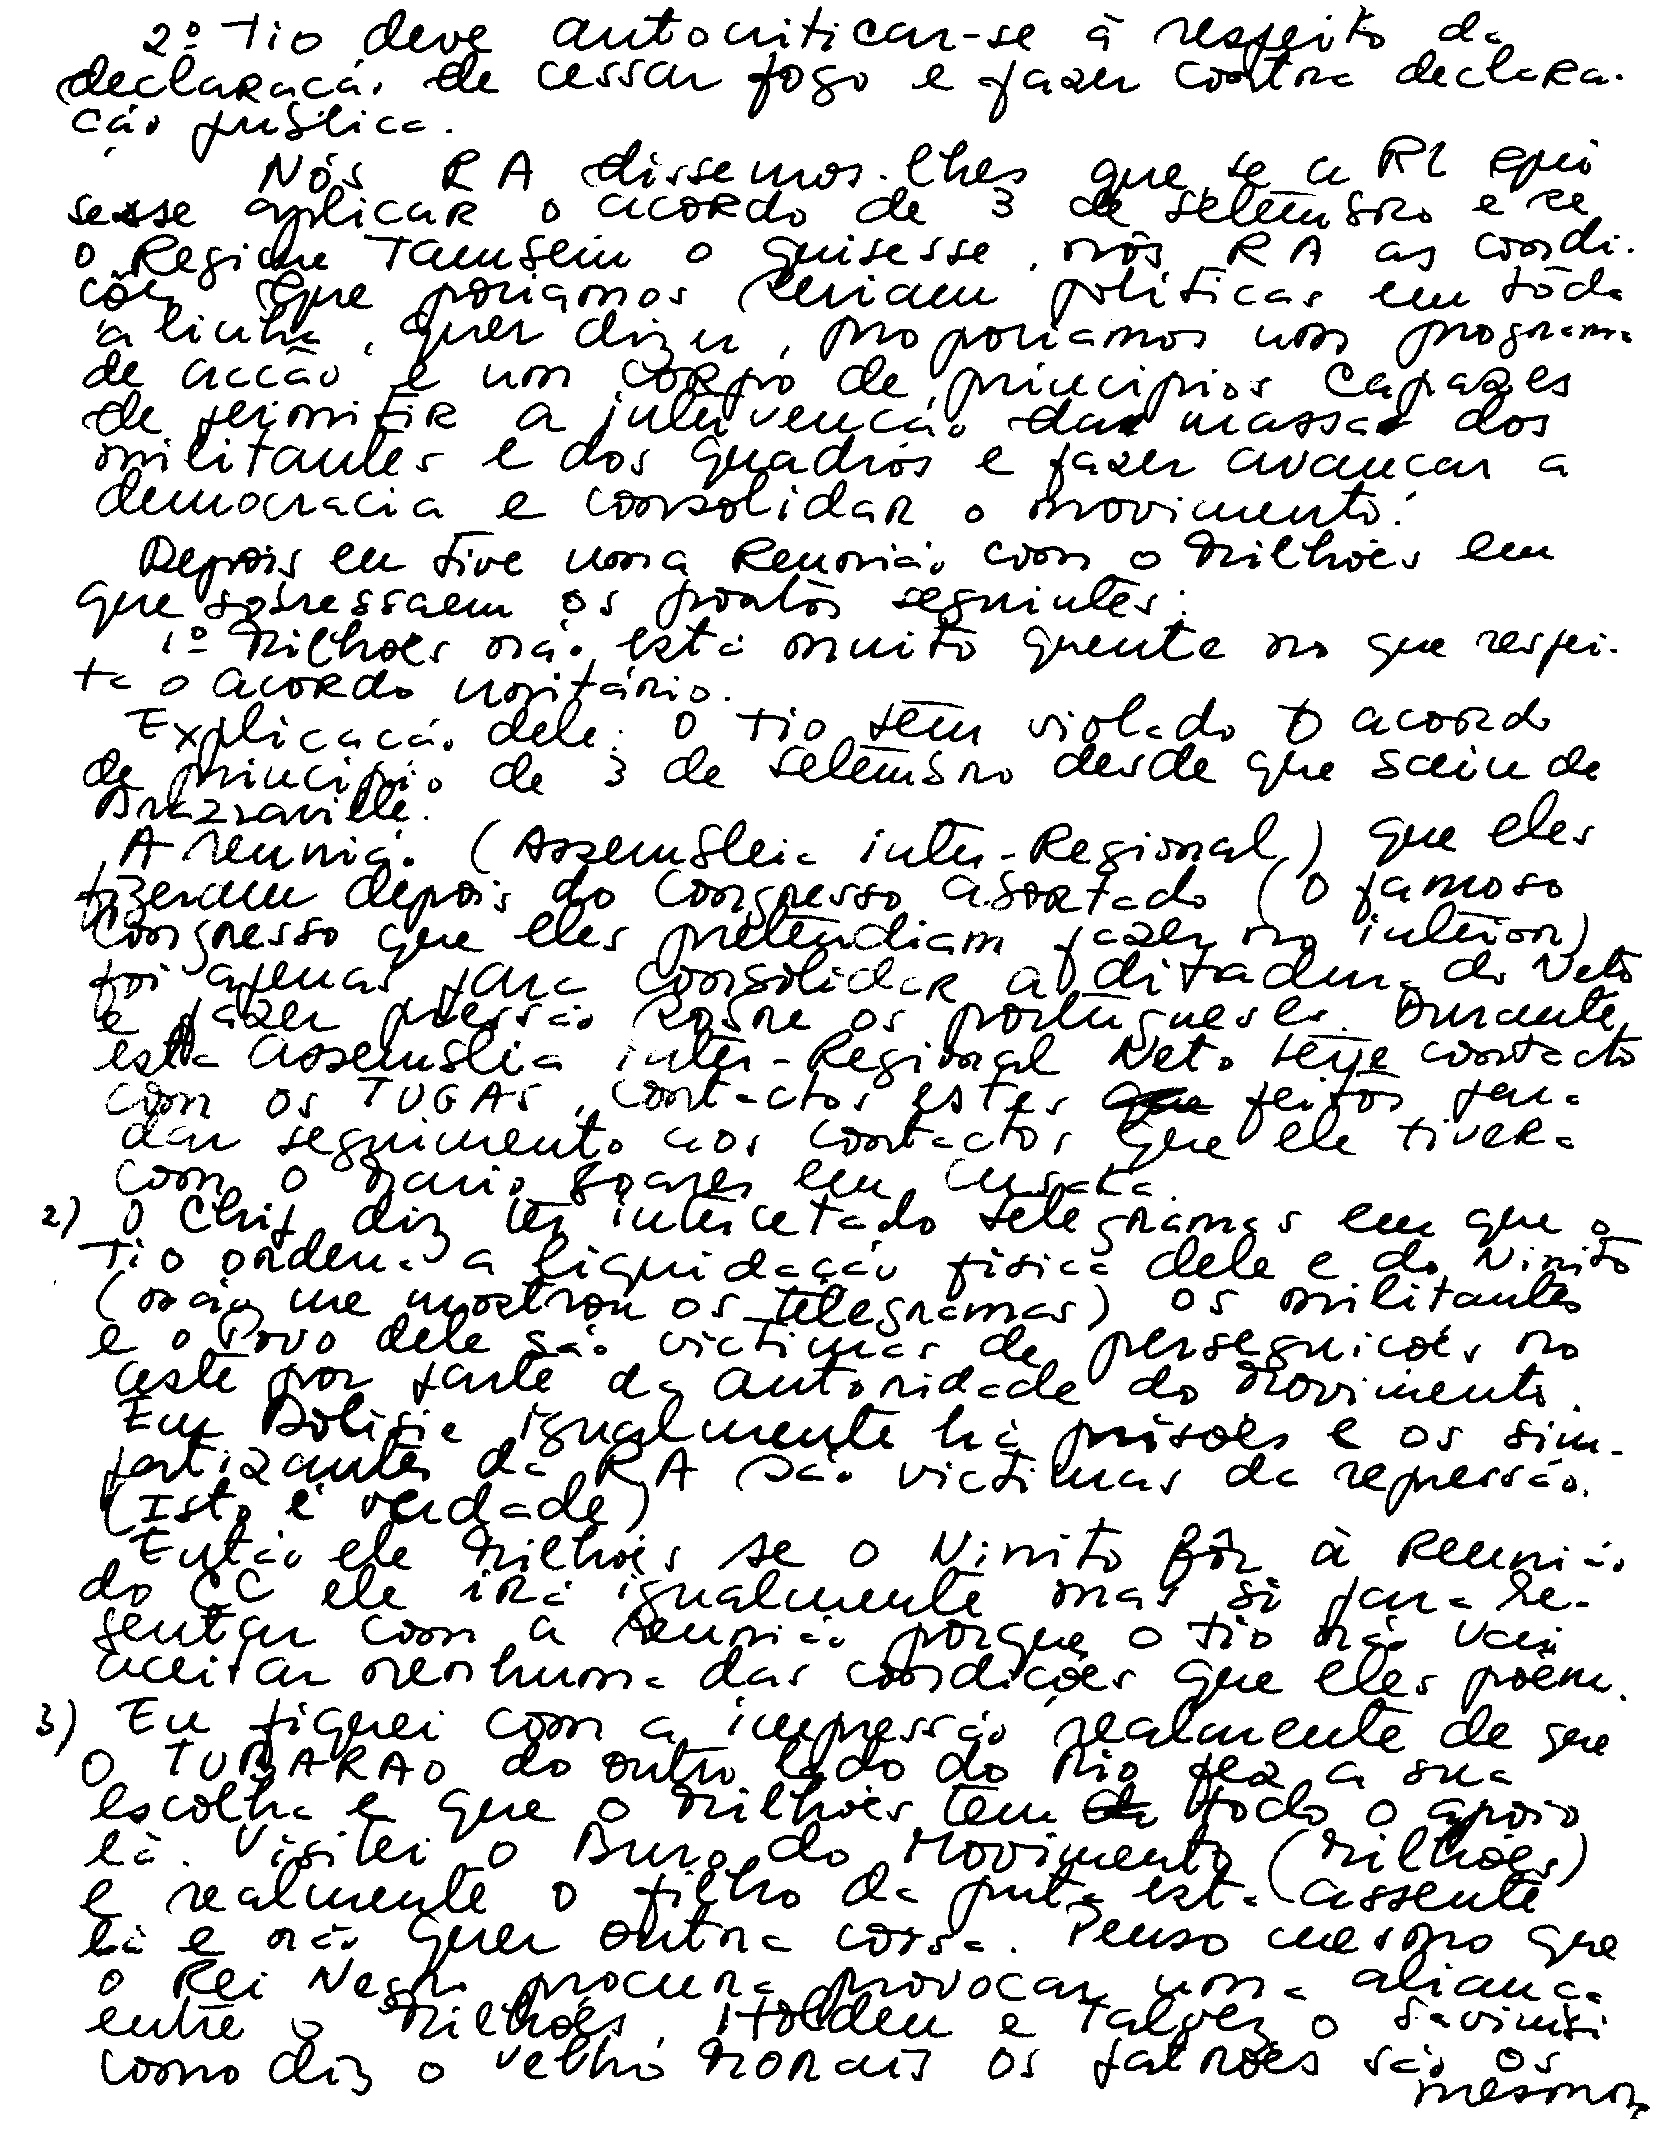 2º Tio deve autocriticar-se à respeito da
declaração de cessar fogo e fazer contra declara-
ção pública.
Nós RA dissemos-lhes que se a RL qui
sesse aplicar o acordo de 3 de setembro e se
o Regime também o quisesse, nós RA as condi-
ções que poriamos seriam políticas em tôda
a linha, quer dizer, proporiamos um programa
de acção e um corpo de princípios capazes
de permitir a intervenção das massas dos
militantes e dos quadros e fazer avançar a
democracia e consolidar o movimento.
Depois eu tive uma Reunião com o Milhões em
que sobressaem os pontos seguintes:
1º Milhões não está muito quente no que respei-
ta o acordo unitário.
Explicação dele: O Tio tem violado o acordo
de princípio de 3 de setembro desde que saiu de
Brazzaville.
A reunião (Assembleia inter-Regional) que eles
fizeram depois do Congresso abortado (o famoso
Congresso que eles pretendiam fazer no interior)
foi apenas para consolidar a ditadura do Neto
e fazer pressão sobre os portugueses. Durante
esta Assembleia inter-Regional Neto teve contacto
com os TUGAS, contactos estes feitos para
dar seguimento aos contactos que ele tivera
com o Mario Soares em Lusaka.
2) O Chif diz ter intercetado telegramas em que o
Tio ordena a liquidação física dele e do Ninito
(não me mostrou os telegramas) Os militantes
e o Povo dele são victimas de perseguições no
este por parte da autoridade do Movimento.
Em Dolisie igualmente há prisões e os sim-
patizantes da RA são victimas da repressão.
(Isto é verdade)
Então ele Milhões se o Ninito fôr à Reunião
do CC ele irá igualmente mas si para re-
bentar com a Reunião porque o Tio não vai
aceitar nenhuma das condições que eles põem.
3) Eu fiquei com a impressão realmente de que
O TUBARAO do outro lado do Rio fez a sua
escolha e que o Milhões tem todo o apoio
lá. Visitei o Buro do Movimento (Milhões)
e realmente o filho da puta está assente
lá e não quer outra coisa. Penso mesmo que
o Rei Negro procura provocar uma aliança
entre o Milhões, Holden e Talvez o Savimbi
como diz o velho Morais os patrões são os
mesmos